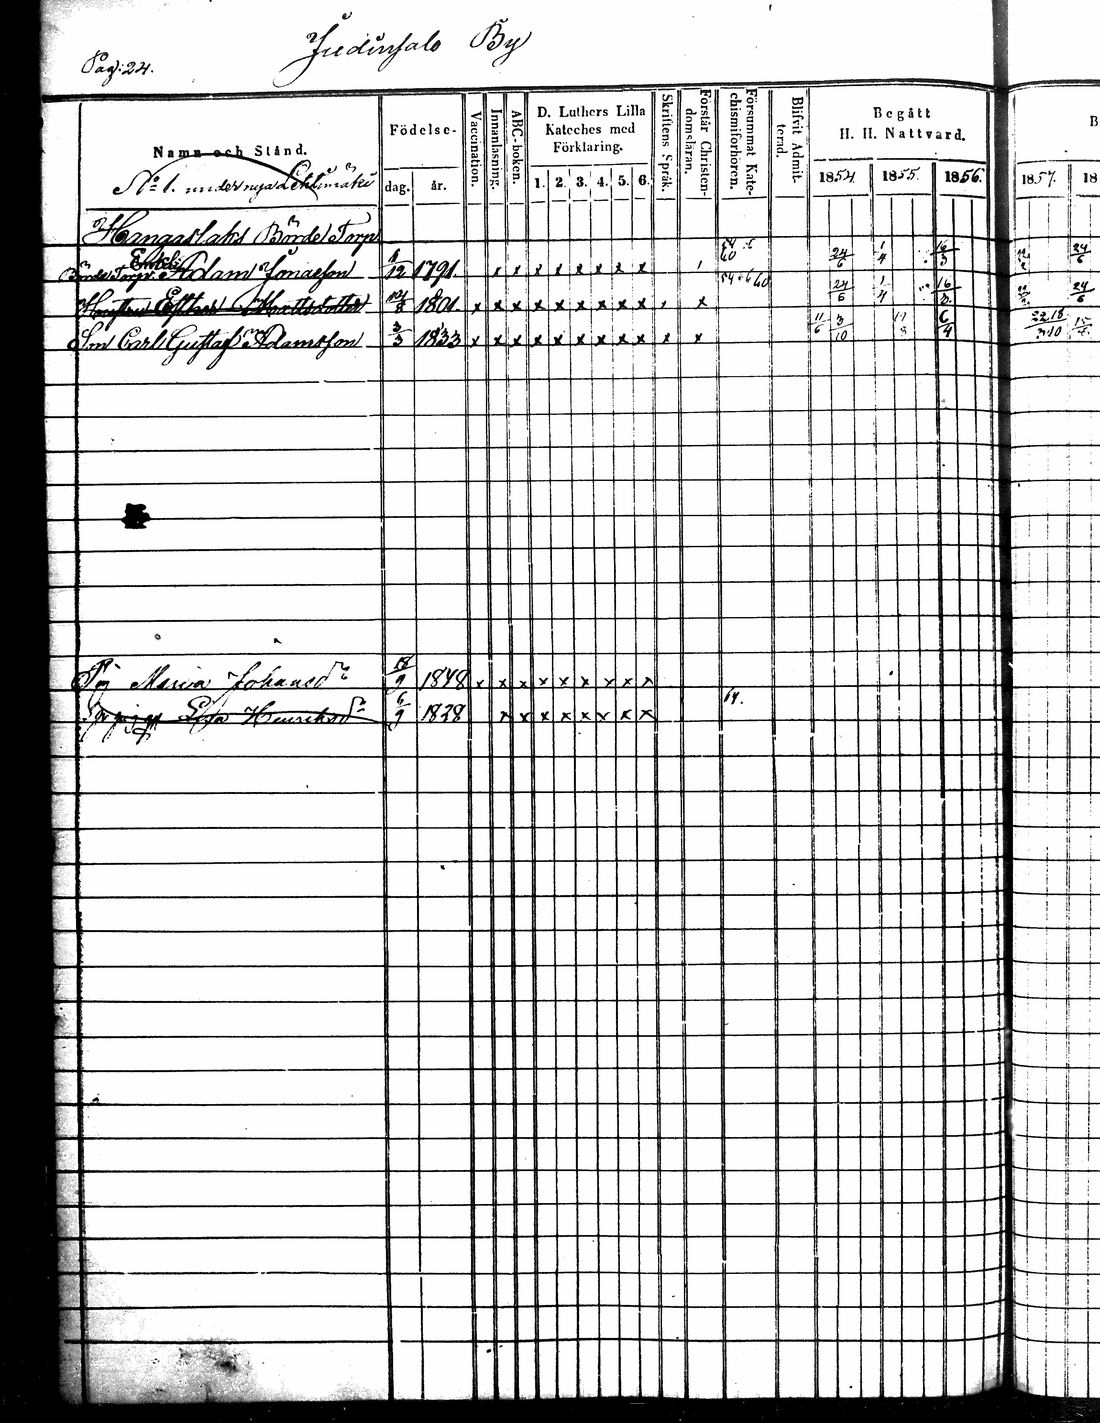 Pag: 24.
Judinsalo By
Namn och Stånd.
Födelse-
dag. år.
Vaccination.
Innanläsning.
ABC-boken.
D. Luthers Lilla Kateches med Förklaring.
1. 2. 3. 4. 5. 6.
Skriftens Språk.
Förstår Christendomsläran.
Försummat Katechismiförhören.
Blifvit Admitterad.
Begått H. H. Nattvard.
1854 1855. 1856.
1857. 18
B
No 1. under nya Lehtimäki
Hangaslaks Börde Torp
Enkl.
Börde Torp. Adam Jonasson /12 1791. x x x x x x x x 24/6 1/4 16/3 24/6
Hustru Esther Mattsdotter /8 1801. x x x x x x x x x x 54 56 60 24/6 1/4 16/3 24/6
Son Carl Gustaf Adamsson 3/3 1833 x x x x x x x x x x x 11/6 3/10 17/8 6/4
Pig Maria Johansd:r 18/9 1848 x x x x x x x x x
Lisa Henriksd:r 6/9 1828 x x x x x x x x 64.